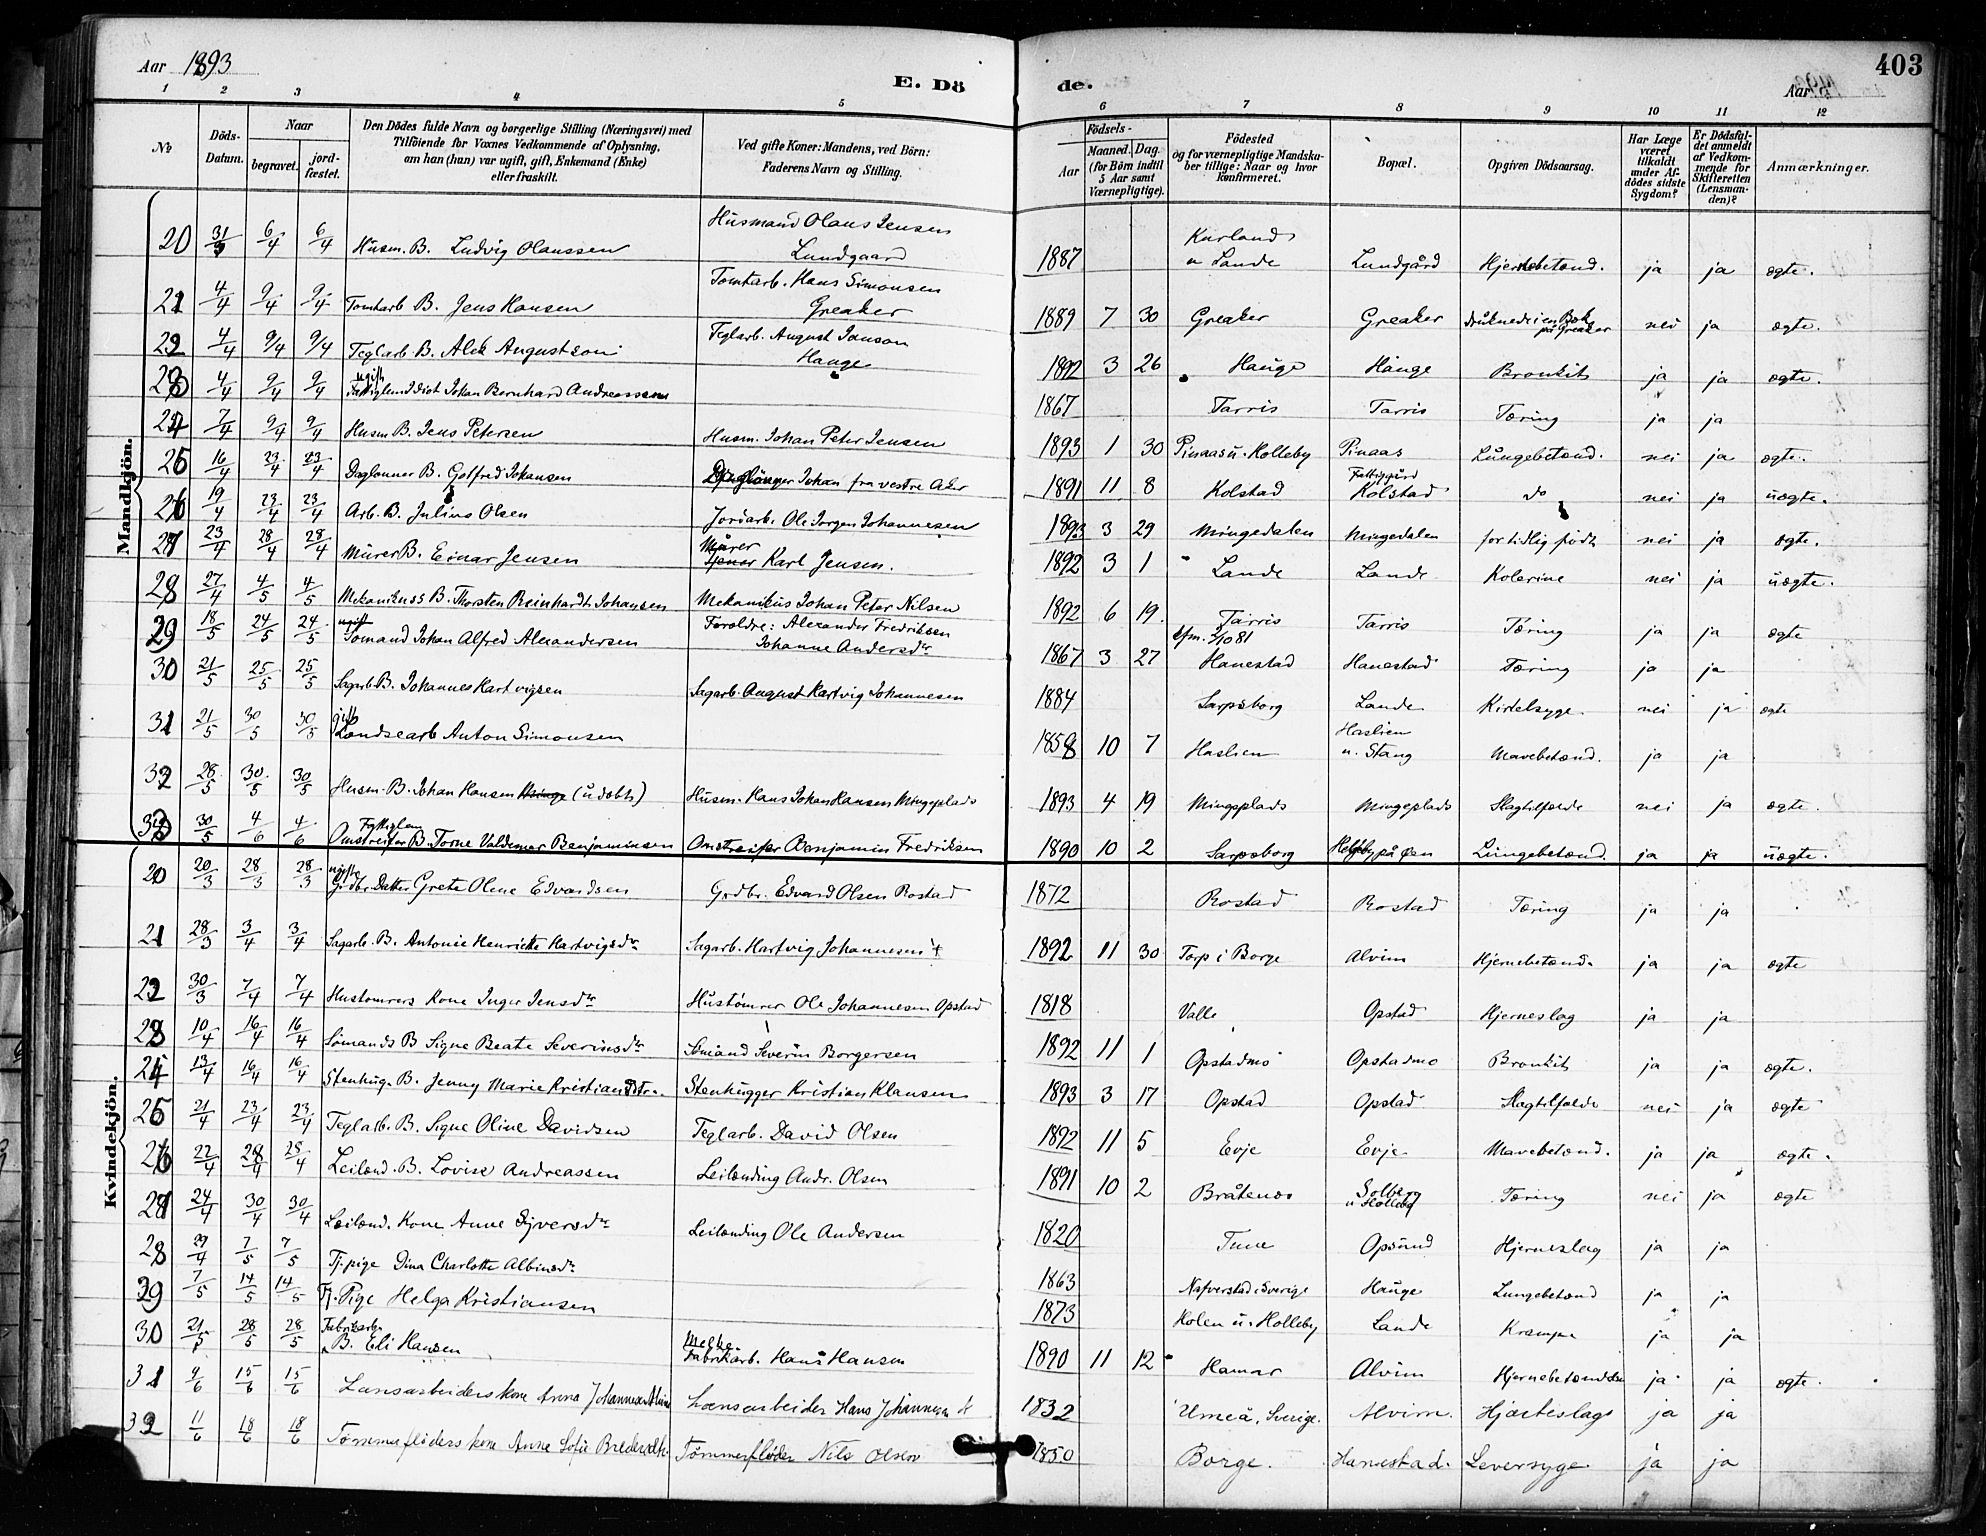 Aar 1893
E. Dö
de.
Aar
403
1 2 3 4 5 6 7 8 9 10 11 12
No
Döds-Datum.
Naar
begravet.
jord-fæstet.
Den Dödes fulde Navn og borgerlige Stilling (Næringsvei) med
Tilföiende for Voxnes Vedkommende af Oplysning,
om han (han) var ugift, gift, Enkemand (Enke)
eller fraskilt.
Ved gifte Koner: Mandens, ved Börn:
Faderens Navn og Stilling.
Födsels-
Aar
Maaned. Dag.
(for Börn indtil
5 Aar samt
Værnepligtige).
Födested
og for værnepligtige Mandska-
ber tillige: Naar og hvor
konfirmeret.
Bopæl.
Opgiven Dödsaarsag.
Har Læge
været
tilkaldt
under Af-
dödes sidste
Sygdom?
Er Dödsfal-
det anmeldt
af Vedkom-
mende for
Skifteretten
(Lensman-
den)?
Anmærkninger.
Mandkjön.
20 31/3 6/4 6/4 Husm. B. Ludvig Olaussen Husmand Olaus Jensen Lundgaard 1887 Kurland u Lande Lundgård Hjernebetænd. ja ja ægte.
21 4/4 9/4 9/4 Tomtarb B. Jens Hansen Tomtarb. Hans Simonsen Greaker 1889 7 30 Greaker Greaker druknede i en Bæk på Greaker nei ja ægte.
22 4/4 9/4 9/4 Teglarb B. Alek Augustson Teglarb. August Janson Hauge 1892 3 26 Hauge Hauge Bronkit ja ja ægte.
23 4/4 9/4 9/4 ugift Fattiglem Idiot Johan Bernhard Andreassen 1867 Tarris Tarris Tæring ja ja
24 7/4 9/4 9/4 Husm B. Jens Petersen Husm. Johan Peter Jensen 1893 1 30 Pinaas u. Holleby Pinaas Lungebetænd. nei ja ægte.
25 16/4 23/4 23/4 Daglønner B. Gotfred Johansen Daglønner Johan fra vestre Aker 1891 11 8 Kolstad Fattiggård Kolstad do nei ja uægte.
26 19/4 23/4 23/4 Arb. B. Julius Olsen Jordarb. Ole Jørgen Johannesen 1893 3 29 Mingedalen Mingedalen for tidlig født nei ja ægte.
27 23/4 28/4 28/4 Murer B. Einar Jensen Murer Karl Jensen. 1892 3 1 Lande Lande Kolerine nei ja uægte.
28 27/4 4/5 4/5 Mekanikuss B. Thorsten Reinhardt Johansen Mekanikus Johan Peter Nilsen 1892 6 19. Tarris Tarris Tæring ja ja ægte
29 18/5 24/5 24/5 ugift Sømand Johan Alfred Alexandersen Forældre: Alexander Fredriksen Johanne Andersdr 1867 3 27 kfm. 2/10 81 Hanestad Hanestad Tæring ja ja
30 21/5 25/5 25/5 Sagarb B. Johannes Hartvigsen Sagarb. August Hartvig Johannesen 1884 Sarpsborg Lande Kirtelsyge nei ja ægte
31 21/5 30/5 30/5 gift Landsearb Anton Simonsen 1858 10 7 Haslien Haslien u. Stang Mavebetænd. ja ja
32 28/5 30/5 30/5 Husm. B. Johan Hansen Minge (udøbt) Husm. Hans Johan Hansen Mingeplads 1893 4 19 Mingsplads Mingeplads Slagtilfælde nei ja ægte.
33 30/5 4/6 4/6 Fattiglem Omstreifer B. Torne Valdemar Benjaminsen Omstreifer Benjamin Fredriksen 1890 10 2 Sarpsborg Helgeby på Øen Lungebetænd. ja ja uægte.
Kvindekjön.
20 20/3 28/3 28/3 ugift Grdbr. Datter Grete Oline Edvardsen Grdbr. Edvard Olsen Rostad 1872 Rostad Rostad Tæring ja ja
21 28/3 3/4 3/4 Sagarb. B. Antonie Henriette Hartvigsdr Sagarb. Hartvig Johannesen 1892 11 30 Torp i Borge Alvim Hjernebetænd. ja ja ægte
22 30/3 7/4 7/4 Hustømrers Kone Inger Jensdr Hustømrer Ole Johannesen Opstad 1818 Valle Opstad Hjerneslag ja ja
23 10/4 16/4 16/4 Sømands B Signe Beate Severinsdr Sømand Severin Borgersen 1892 11 1 Opstadmo Opstadmo Bronkit ja ja ægte.
24 13/4 16/4 16/4 Stenhug. B. Jenny Marie Kristians Dtr. Stenhugger Kristian Klausen 1893 3 17 Opstad Opstad Slagtilfælde nei ja ægte
25 21/4 23/4 23/4 Teglarb. B. Signe Oline Davidsen Teglarb. David Olsen 1892 11 5 Evje Evje Mavebetænd. ja ja ægte.
26 22/4 28/4 25/4 Leilænd. B. Lovise Andreassen Leilænding Andr. Olsen 1891 10 2 Bråtenæs Solberg u Holleby Tæring nei ja ægte
27 24/4 30/4 30/4 Leilænd. Kone Anne Sjversdr Leilænding Ole Andersen 1820 Tune Opsund Hjerneslag ja ja
28 29/4 7/5 7/5 Tj. pige Dina Charlotte Albinsdr 1863 Nafverstad i Sverige Hauge Lungebetænd ja ja
29 7/5 14/5 14/5 Tj. Pige Helga Kristiansen 1873 Holen u. Holleby Lande Krampe ja ja
30 21/5 28/5 28/5 Fabrikarb. B. Eli Hansen Fabrikarb. Hans Hansen 1890 11 12 Hamar Alvim Hjernebetændelse ja ja ægte.
31 9/6 15/6 15/6 Lænsarbeiders kone Anna Johannesen Alvim Lænsarbeider Hans Johannesen 1832 Umeå, Sverige. Alvim. Hjerteslag ja ja
32 11/6 18/6 18/6 Tømmerfløders kone Anne Sofie Bredesdtr. Tømmerfløder Nils Olsen 1850 Borge. Hanestad. Leversyge. ja ja